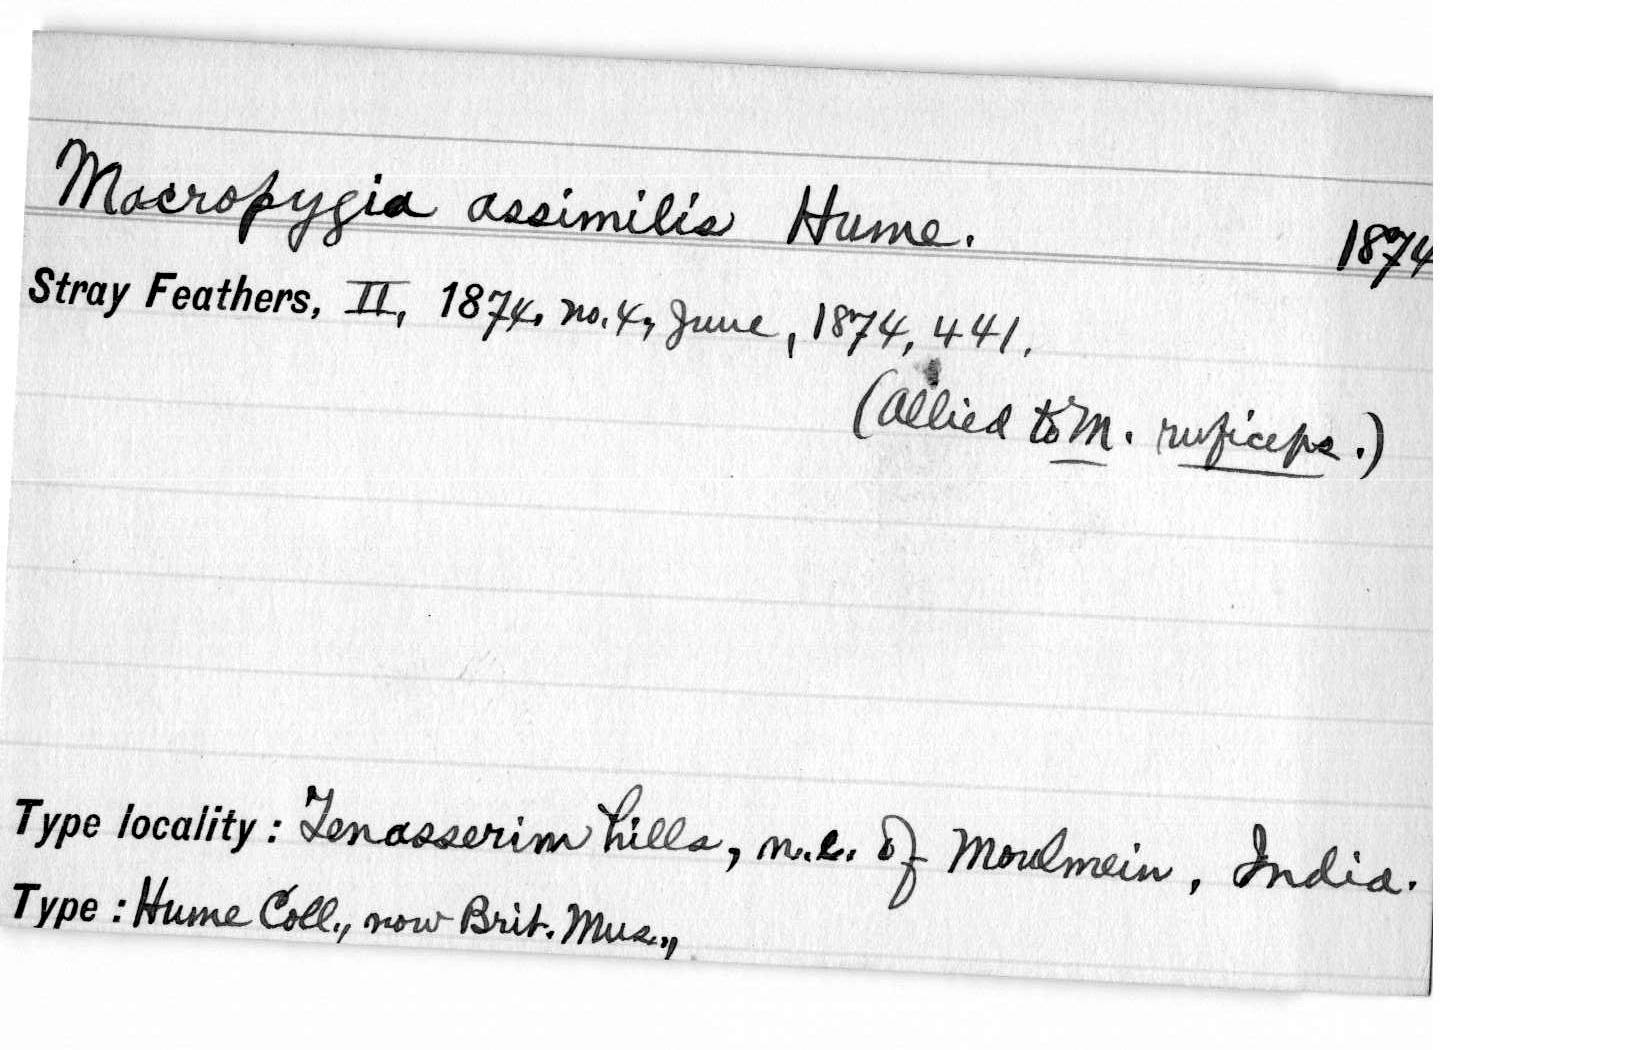 Macropygia assimilis Hume. 1874
Stray Feathers, II, 1874, no. 4, June, 1874, 441.
(Allied to M. ruficeps.)
Type locality: Tenasserim hills, n.e. of Moulmein, India.
Type: Hume Coll., now Brit. Mus.,